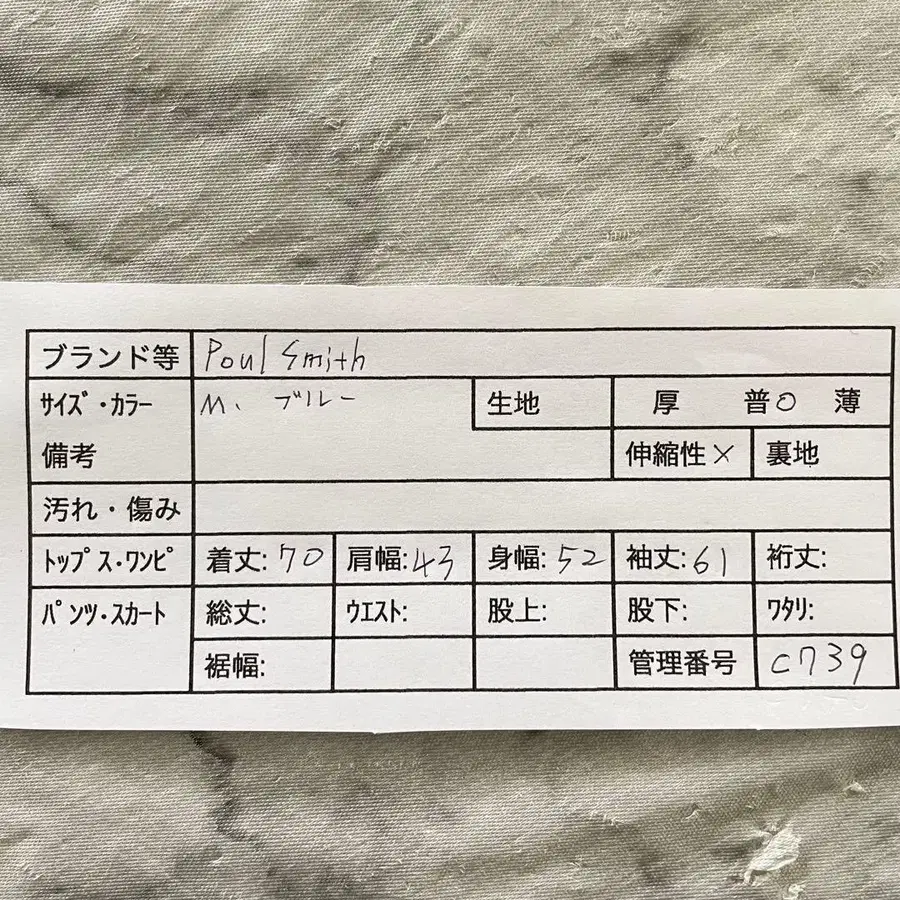 ブランド等 Poul Smith
サイズ・カラー M. ブルー 生地 厚 普○ 薄
備考 伸縮性× 裏地
汚れ・傷み
トップス・ワンピ 着丈:70 肩幅:43 身幅:52 袖丈:61 裄丈:
パンツ・スカート 総丈: ウエスト: 股上: 股下: ワタリ:
裾幅: 管理番号 C739